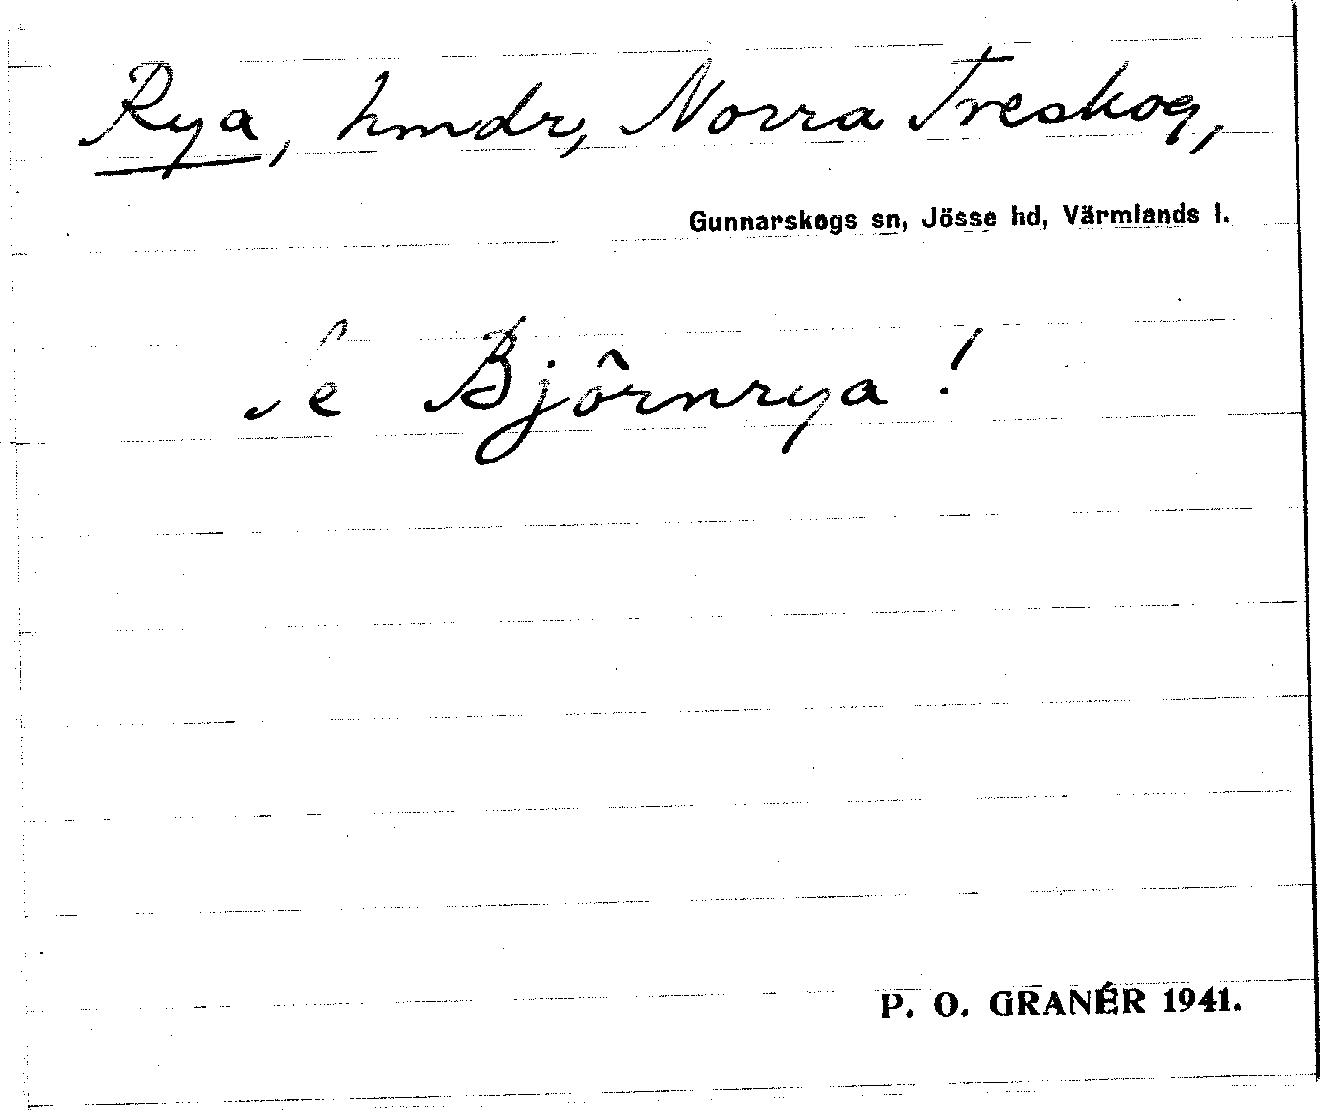 Rya, hmdr, Norra Treskog,
Gunnarskogs sn, Jösse hd, Värmlands l.
Se Björnrya!
P. O. GRANÉR 1941.